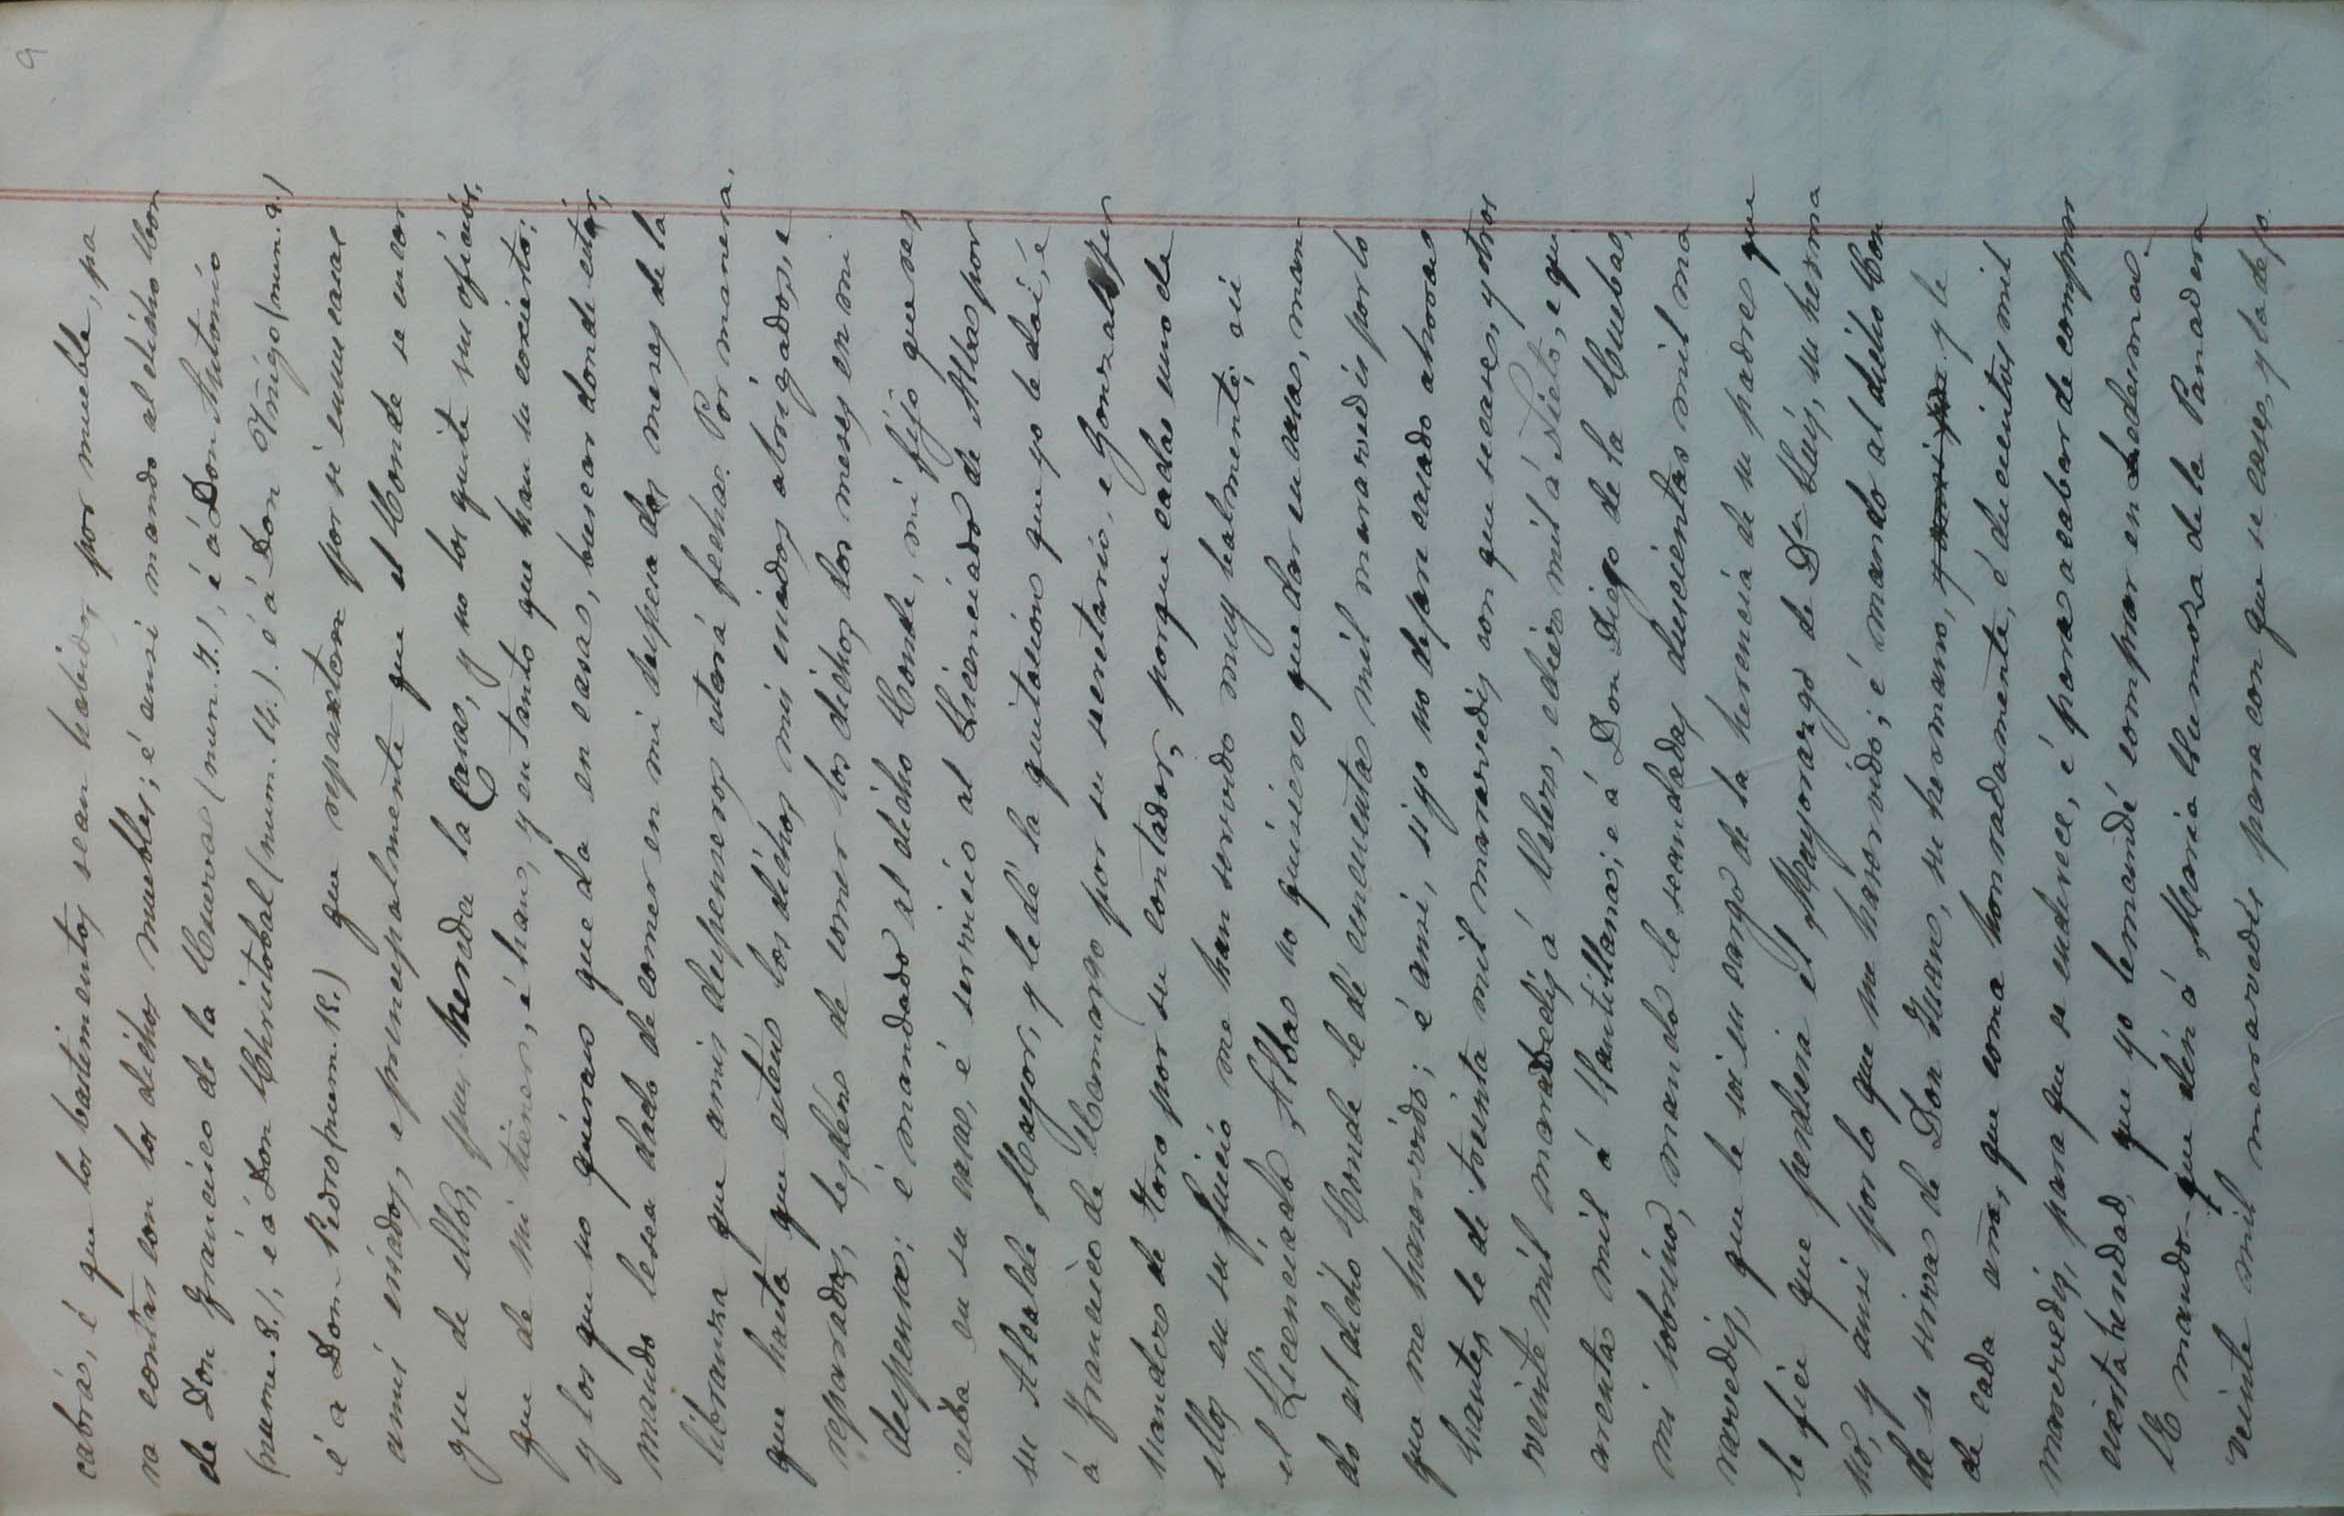 9
cabras, é que los bastimentos sean habidos por mueble, pa
ra contar con los dichos muebles; é ansi mando al dicho Con
de Don Francisco de la Cueva (num. 7.), é á Don Antonio
(num. 8.), é á Don Christobal (num. 14.) é á Don Yñigo (num. 9.)
é a Don Pedro (num. 12.) que repartan por si
a mis criados, e principalmente que el Conde se encar
gue de ellos, pues hereda la Casa, y no los quite sus oficios,
que de mi tienen, é han, y en tanto que han su concierto;
y los que no quieran que da en casa, buscar donde estar,
mando les sea dado de comer en mi despensa dos meses de la
libranza que a mis despenseros estará fecha. Por manera,
que hasta que esten los dichos mis criados abrigados, e
reparados, les den de comer los dichos dos meses en mi
despensa; é mandado al dicho Conde, mi fijo que res
ciba en su casa, é servicio al Licenciado de Alba por
su Alcalde Mayor, y le dé la quitacion que yo le doi, é
á Francisco de Camargo por su secretario, e Gonzalo fer
nandez de Toro por su contador, porque cada uno de
ellos en su juicio me han servido muy lealmente; si
el Licenciado Alba no quisiere quedar en casa, man
do al dicho Conde le dé cincuenta mil maravedis por lo
que me ha servido; é ansi, si yo no dejare casado a
hantes le dé treinta mil maravedis con que se case, y otros
veinte mil maravedis á Valero, e diez mil á Nieto, e qu
arenta mil á Santillana; e á Don Diego de la Cueba,
mi sobrino, mando le sean dadas duscientas mil ma
ravedis, que le soi en cargo de la herencia de su padre que
le fice que perdiera el Mayorazgo de Dn Luis, su herma
no, y ansi por lo que me há servido; é mando al dicho Con
de se sirva de Don Juan, su hermano, y le
dé cada año, que coma honradamente, é duscientos mil
maravedis, para que se enderece, é para acabar de comprar
cierta heredad, que yo le mandé comprar en Ledesma.
E mando que den á Maria Hermosa de la Panadera
veinte mil maravedis para con que se case, y la dejo